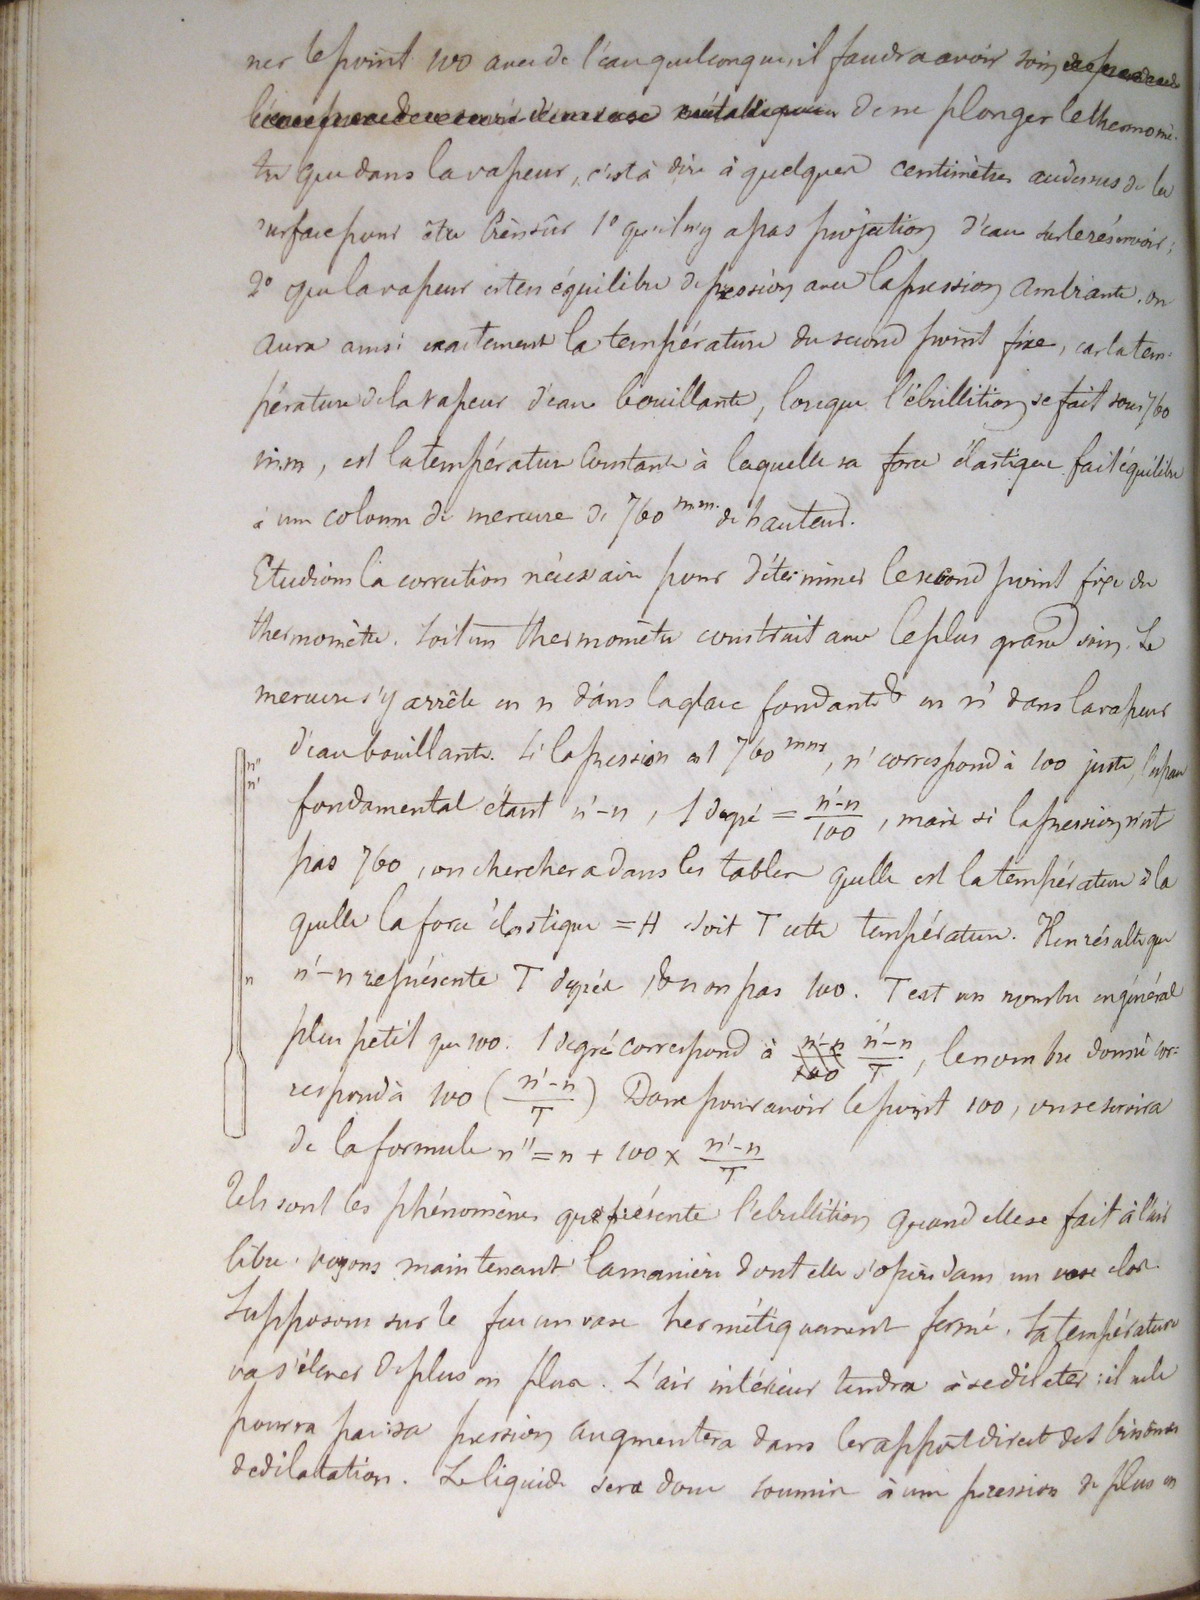 ner le point 100 avec de l'eau quelconque, il faudra avoir soin
de ne plonger le thermomè-
tre que dans la vapeur, c'est à dire à quelques centimètres au dessus de la
surface pour être bien sûr 1° qu'il n'y a pas projection d'eau sur le réservoir;
2° que la vapeur est en équilibre de pression avec la pression ambiante. on
aura ainsi exactement la température du second point fixe, car la tem-
pérature de la vapeur d'eau bouillante, lorsque l'ébullition se fait sous 760
m.m, est la température constante à laquelle sa force élastique fait équilibre
à une colonne de mercure de 760 mm. de hauteur.
Etudions la correction nécessaire pour déterminer le second point fixe du
thermomètre. Soit un thermomètre construit avec le plus grand soin. Le
mercure s'y arrête en n dans la glace fondante & en n' dans la vapeur
d'eau bouillante. Si la pression est 760 mm, n' correspond à 100 juste, l'espace
n''
n'
fondamental étant n'-n, 1 degré = n'-n / 100, mais si la pression n'est
pas 760, on cherchera dans les tables quelle est la température à la
quelle la force élastique = H soit T cette température. Il en résulte que
n
n'-n représente T degrés & non pas 100. T est un nombre en général
plus petit que 100. 1 degré correspond à n'-n / 100 n'-n / T, le nombre donné cor-
respond à 100 (n'-n / T) Donc pour avoir le point 100, on se servira
de la formule n'' = n + 100 × n'-n / T
Tels sont les phénomènes que présente l'ébullition quand elle se fait à l'air
libre. voyons maintenant la manière dont elle s'opère dans un vase clos.
Supposons sur le feu un vase hermétiquement fermé. Sa température
va s'élever de plus en plus. L'air intérieur tendra à se dilater : il ne le
pourra pas : sa pression augmentera dans le rapport direct des binômes
de dilatation. Le liquide sera donc soumis à une pression de plus en